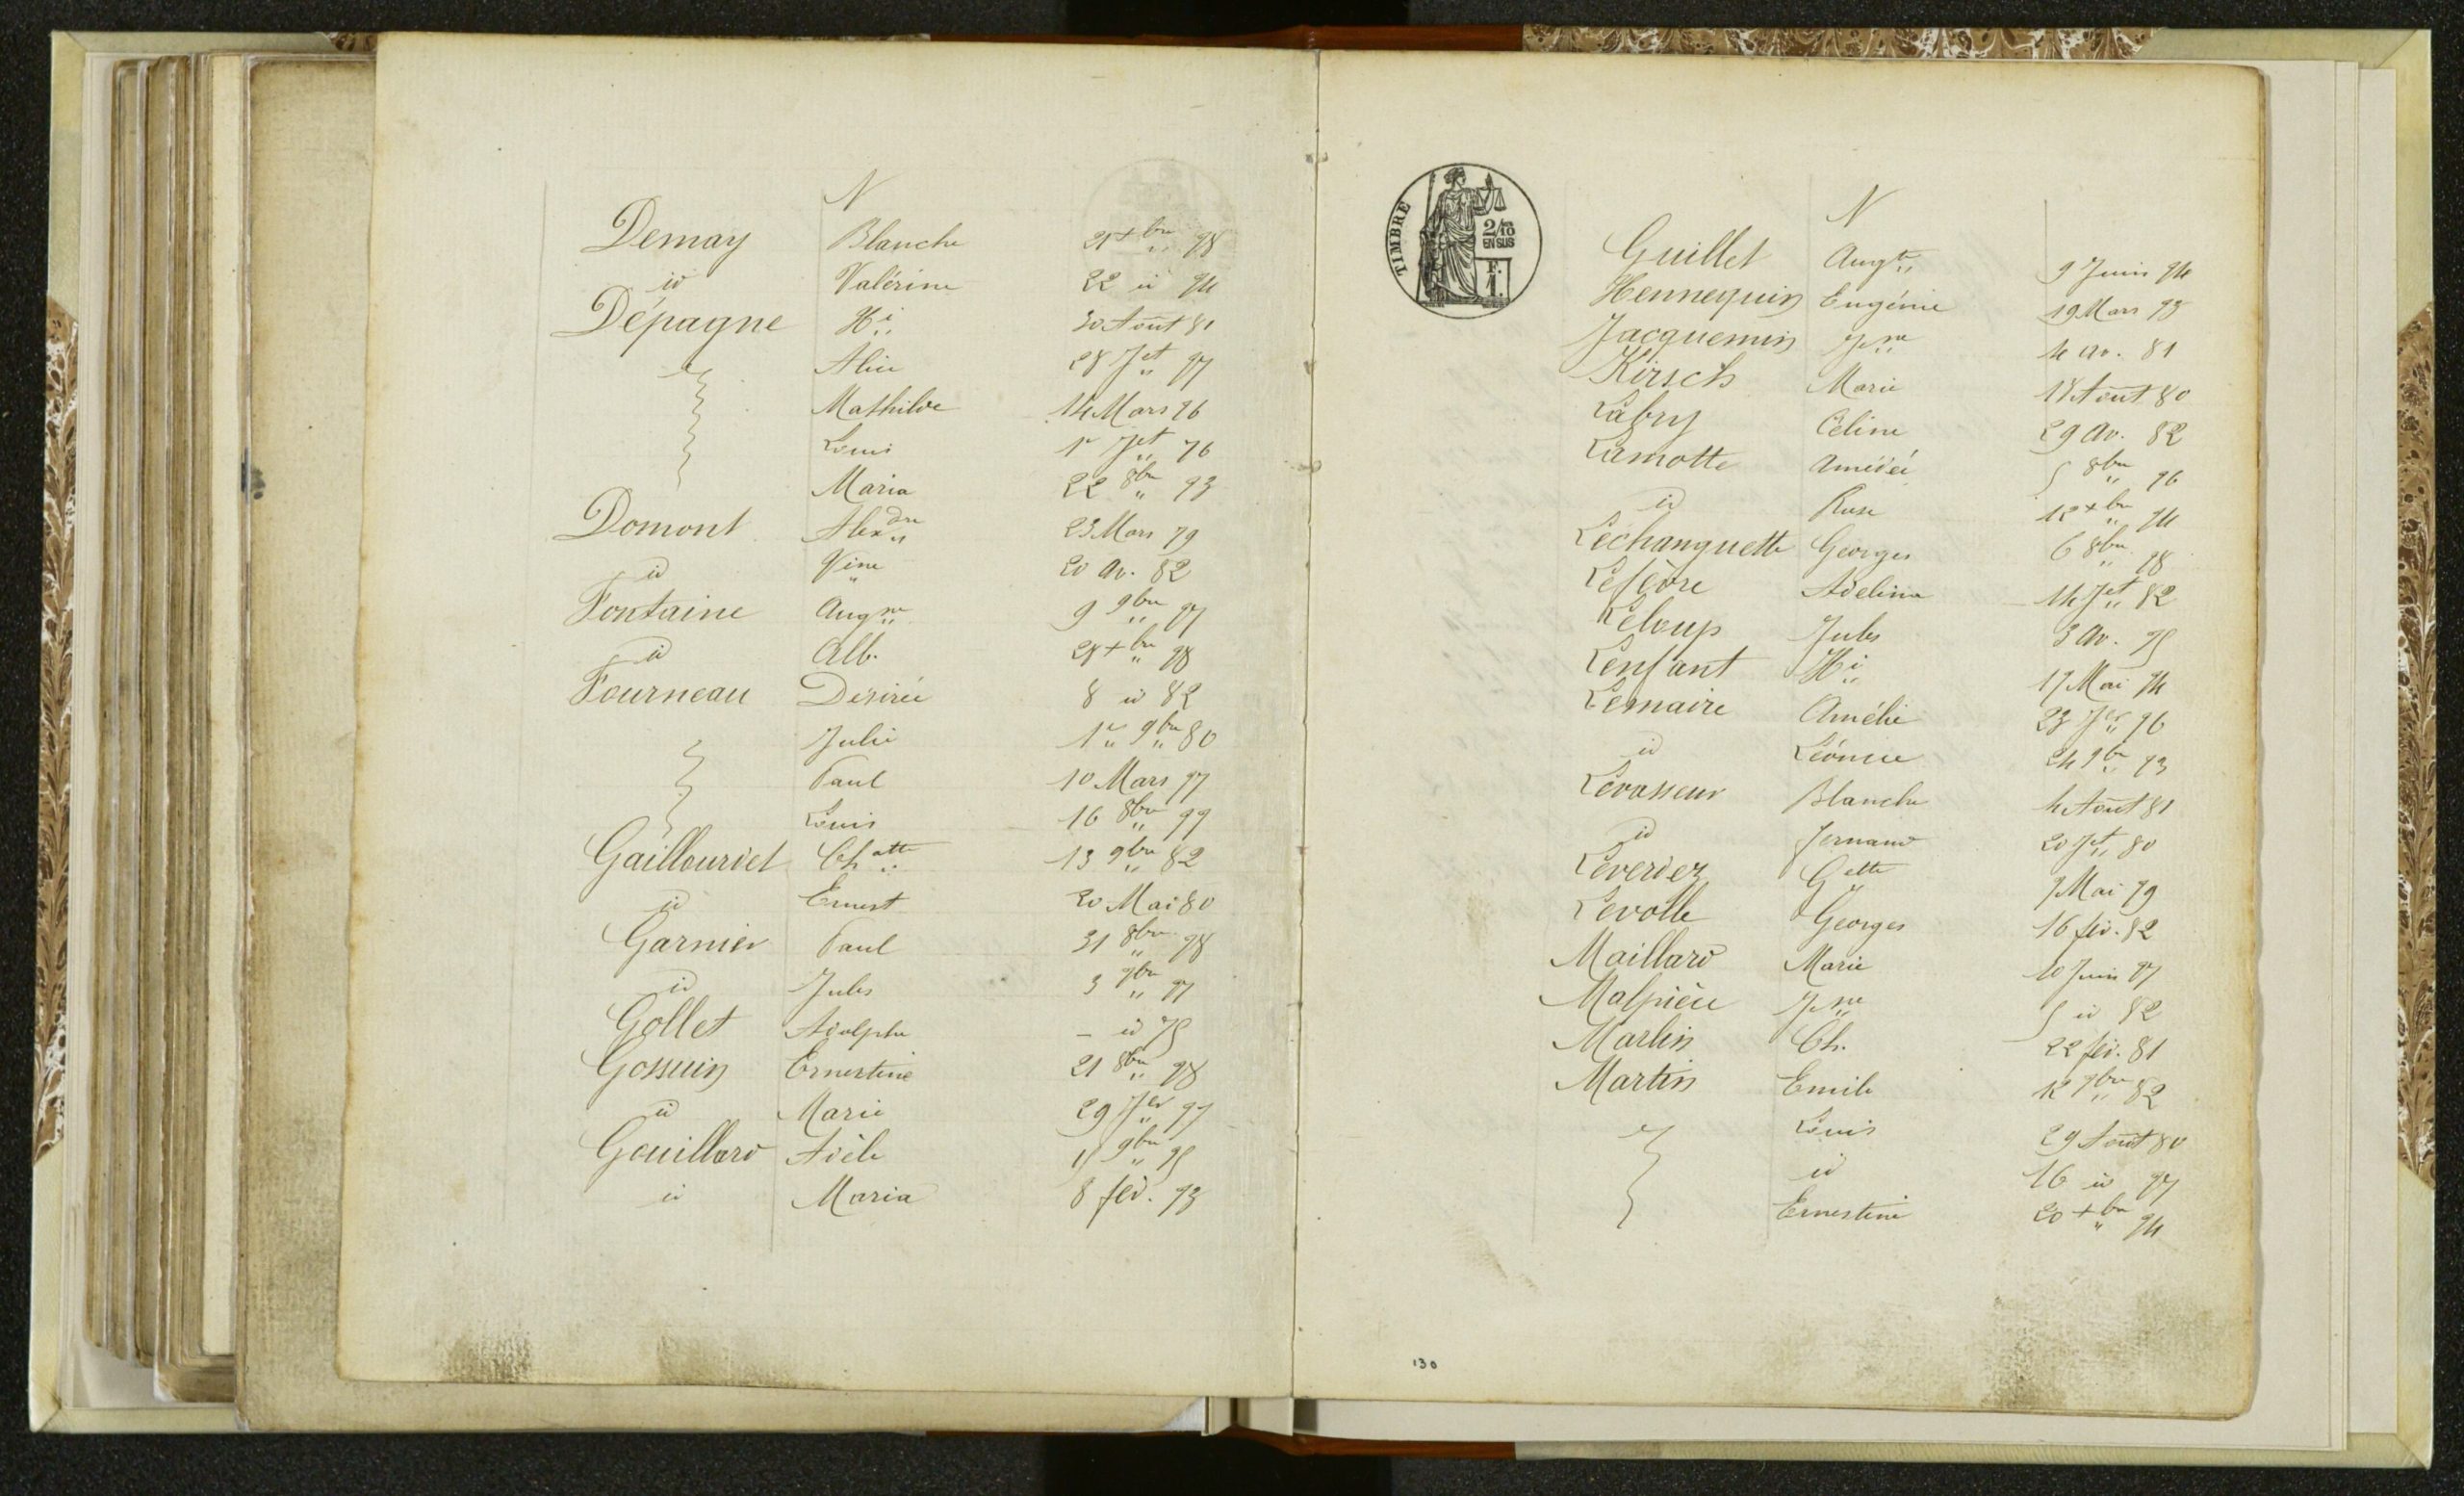 N
Demay Blanche 21 Xbre 78
id Valérine 22 id 74
Dépagne Hi 30 Août 81
Alice 28 Jet 77
Mathilde 14 Mars 76
Louis 1r Jet 76
Maria 22 8bre 73
Domont Alexdre 23 Mars 79
id Vine 20 av. 82
Fontaine Augne 9 9bre 77
id Alb. 28 Xbre 78
Fourneau Désirée 8 id 82
Julie 1er 9bre 80
Paul 10 Mars 77
Louis 16 8bre 79
Gaillourdet Chatte 13 9bre 82
id Ernest 20 Mai 80
Garnier Paul 31 8bre 78
id Jules 3 7bre 77
Gollet Adolphe - id 75
Gossuin Ernestine 21 8bre 78
id Marie 29 Jer 77
Gouillard Adèle 15 9bre 75
id Maria 8 fév. 73
TIMBRE
2/10
EN SUS
F.
1.
N
Guillet Augte 9 Juin 74
Hennequin Eugénie 19 Mars 73
Jacquemin Jne 4 av. 81
Kirsch Marie 18 Août 80
Labry Céline 29 av. 82
Lamotte Amédée 5 8bre 76
id Rose 12 Xbre 74
Lechanguette Georges 6 8bre 78
Lefèvre Adelina 14 Jet 82
Leloup Jules 3 av. 75
Lenfant Hi 17 Mai 74
Lemaire Amélie 23 Jer 76
id Léonie 24 9bre 73
Levasseur Blanche 4 Août 81
id fernand 20 Jet 80
Leverdez Gette 7 Mai 79
Levolle Georges 16 fév. 82
Maillard Marie 10 Juin 77
Malpièce Jne 5 id 82
Marlin Ch. 22 fév. 81
Martin Emile 12 7bre 82
Louis 29 Août 80
id 16 id 77
Ernestine 20 Xbre 74
130